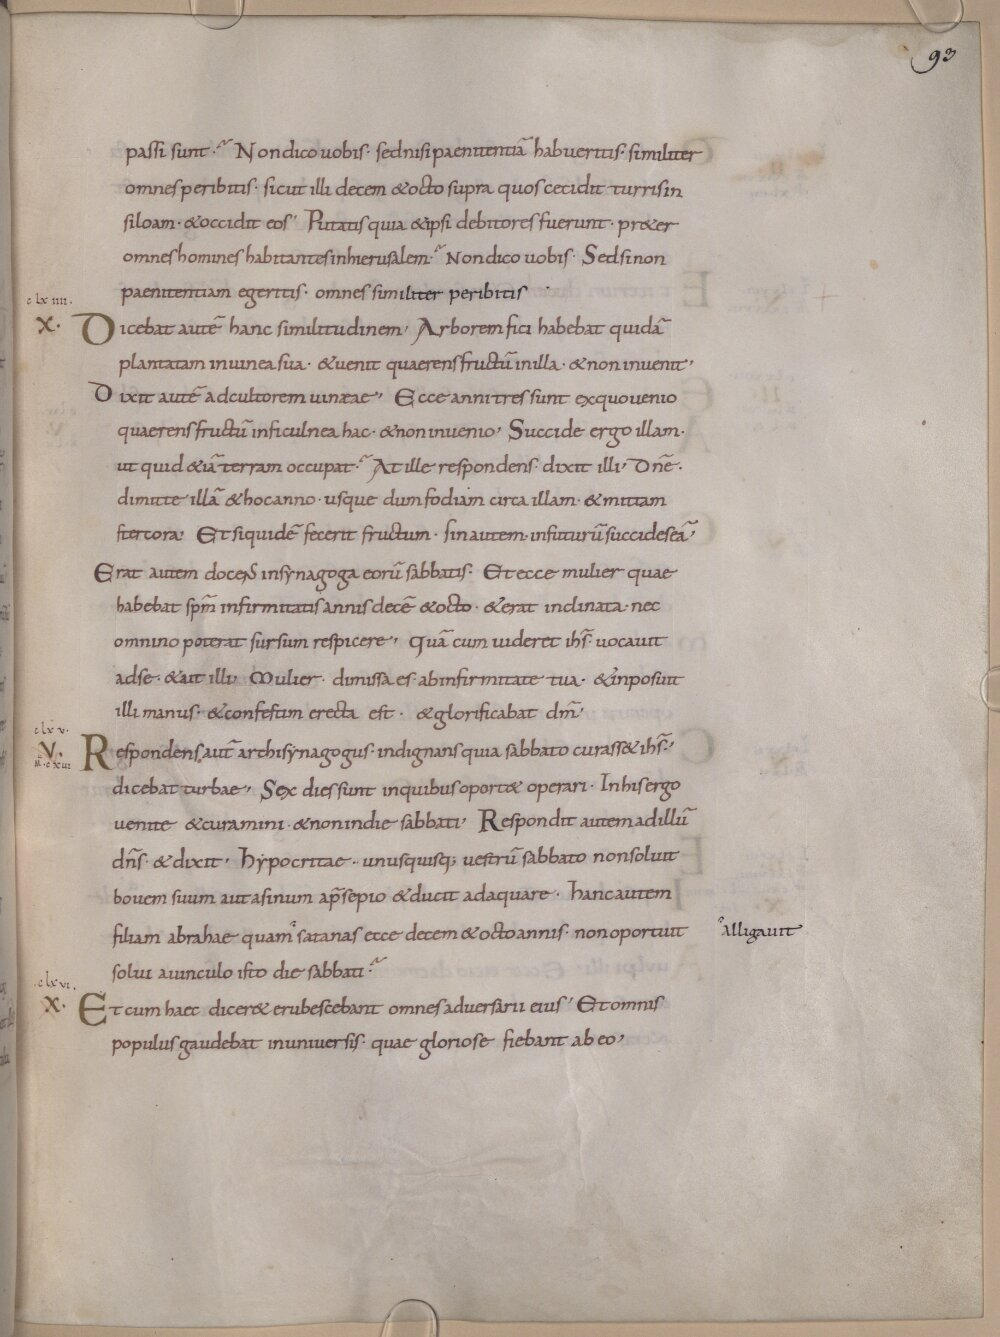 93
passi sunt· Non dico uobis· sed nisi paenitentiā habueritis· similiter
omnes peribitis· sicut illi decem & octo supra quos cecidit turris in
siloam· & occidit eos, Putatis quia & ipsi debitores fuerunt· pr&er
omnes homines habitantes in hierusalem· Non dico uobis· Sed si non
paenitentiam egeritis· omnes similiter peribitis
clxiiii.
X. Dicebat autē hanc similitudinem, Arborem fici habebat quidā
plantatam in uinea sua· & uenit quaerens fructū in illa· & non inuenit,
Dixit autē ad cultorem uineae, Ecce anni tres sunt ex quo uenio
quaerens fructū in ficulnea hac· & non inuenio, Succide ergo illam·
ut quid & iā terram occupat· At ille respondens· dixit illi, Dn̄e·
dimitte illā & hoc anno· usque dum fodiam circa illam· & mittam
stercora, Et siquidē fecerit fructum· sin autem· in futurū succides eā,
Erat autem docens in synagoga eorū sabbatis· Et ecce mulier quae
habebat sp̄m infirmitatis annis decē & octo· & erat inclinata· nec
omnino poterat sursum respicere, Quā cum uideret ih̄s· uocauit
ad se· & ait illi, Mulier· dimissa es ab infirmitate tua· & inposuit
illi manus· & confestim erecta est· & glorificabat dm̄,
clxv.
V. Respondens aut̄ archisynagogus· indignans quia sabbato curass& ih̄s·,
M. cxui
dicebat turbae, Sex dies sunt in quibus oport& operari· In his ergo
uenite & curamini· & non in die sabbati, Respondit autem ad illū
dn̄s· & dixit, hypocritae· unusquisq; uestrū sabbato non soluit
bouem suum aut asinum a p̄sepio & ducit adaquare· hanc autem
filiam abrahae quam satanas ecce decem & octo annis· non oportuit alligauit
solui a uinculo isto die sabbati·
clxvi.
X. Et cum haec dicer& erubescebant omnes aduersarii eius, Et omnis
populus gaudebat in uniuersis· quae gloriose fiebant ab eo,